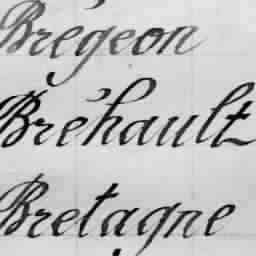 Brégeon
Bréhault
Bretagne